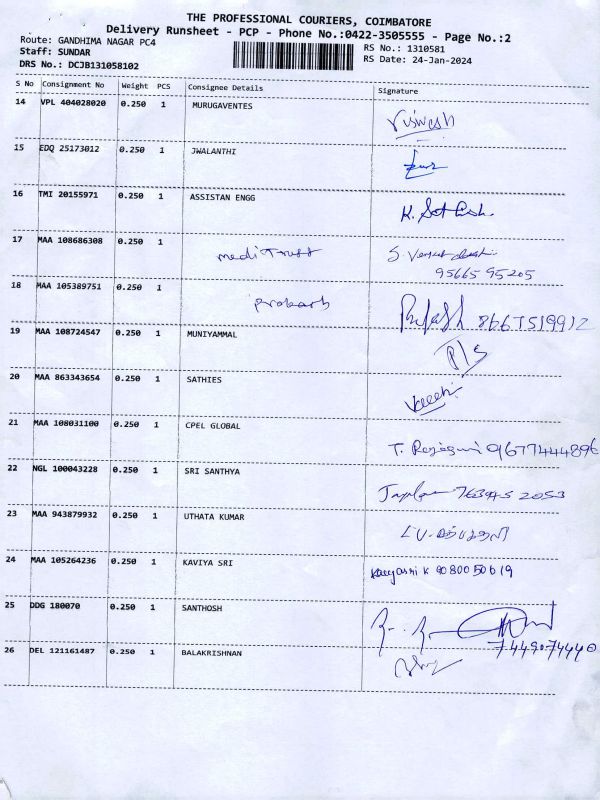 THE PROFESSIONAL COURIERS, COIMBATORE
Delivery Runsheet - PCP - Phone No.:0422-3505555 - Page No.:2
Route: GANDHIMA NAGAR PC4 RS No.: 1310581
Staff: SUNDAR RS Date: 24-Jan-2024
DRS No.: DCJB131058102
S No Consignment No Weight PCS Consignee Details Signature
14 VPL 404028020 0.250 1 MURUGAVENTES
15 EDQ 25173012 0.250 1 JWALANTHI
16 TMI 20155971 0.250 1 ASSISTAN ENGG K. Sathish
17 MAA 108686308 0.250 1 meditrust
9566595205
18 MAA 105389751 0.250 1 8667519912
19 MAA 108724547 0.250 1 MUNIYAMMAL
20 MAA 863343654 0.250 1 SATHIES
21 MAA 108031100 0.250 1 CPEL GLOBAL 9677444896
22 NGL 100043228 0.250 1 SRI SANTHYA
23 MAA 943879932 0.250 1 UTHATA KUMAR
24 MAA 105264236 0.250 1 KAVIYA SRI
25 DDG 180070 0.250 1 SANTHOSH
7449074440
26 DEL 121161487 0.250 1 BALAKRISHNAN